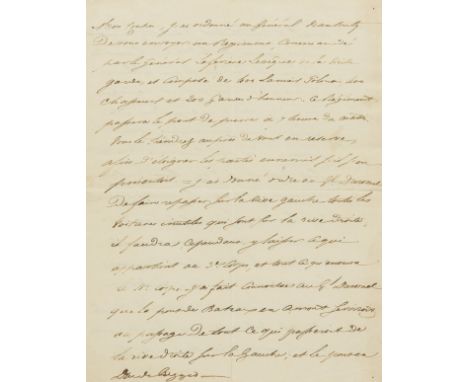 Mon Cousin, j'ai ordonné au Général Nansouty
De vous envoyer un Régiment Commandé
par le Général Lefebvre de la
garde, et Composé de Lanciers
Chasseurs et Des Gardes d'honneur. Ce Régiment
passera le pont de pierre à heure du matin
Vous le tiendrez auprès de vous en réserve,
afin d'éloigner les partis ennemis s'il s'en
présentait — j'ai donné ordre au Gl. Durosnel
De faire repasser sur la rive gauche toutes les
Voitures inutiles qui sont sur la rive droite,
il faudra cependant y laisser ce qui
appartient au Corps, et tout ce qui
le Corps. j'ai fait connoitre au Gl. Durosnel
que le pont de Bateaux en Amont serviroit
au passage de tout ce qui passeroit de
la rive droite sur la Gauche, et le pont